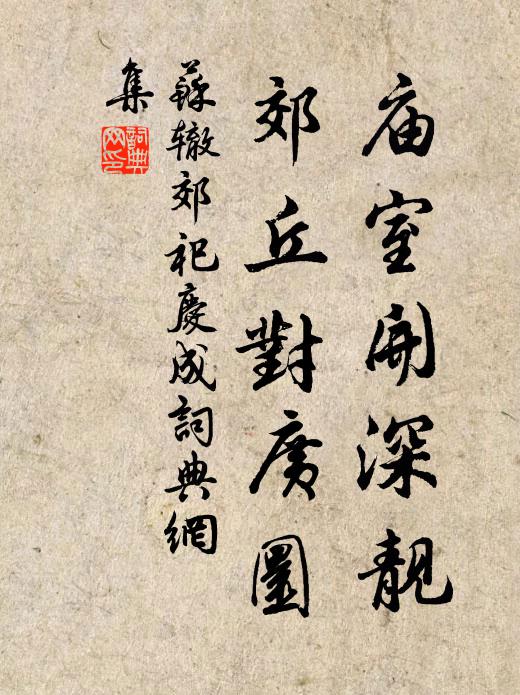 庙室開深靚
郊丘對廣圜
蘇辙郊祀慶成詞典網
集
詞典
网印